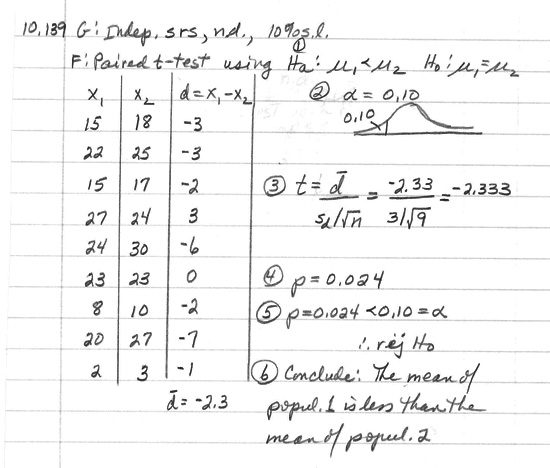 10.139 G: Indep. srs, n.d., 10% s.l.
①
F: Paired t-test using Ha: μ₁<μ₂ H₀: μ₁=μ₂
x₁ x₂ d=x₁-x₂ ② α = 0.10
15 18 -3 0.10
22 25 -3
15 17 -2 ③ t = d̄ / (s_d/√n) = -2.33 / (3/√9) = -2.333
27 24 3
24 30 -6
23 23 0 ④ p = 0.024
8 10 -2 ⑤ p=0.024 < 0.10 = α
20 27 -7 ∴ rej H₀
2 3 -1 ⑥ Conclude: The mean of
d̄ = -2.3 popul. 1 is less than the
mean of popul. 2